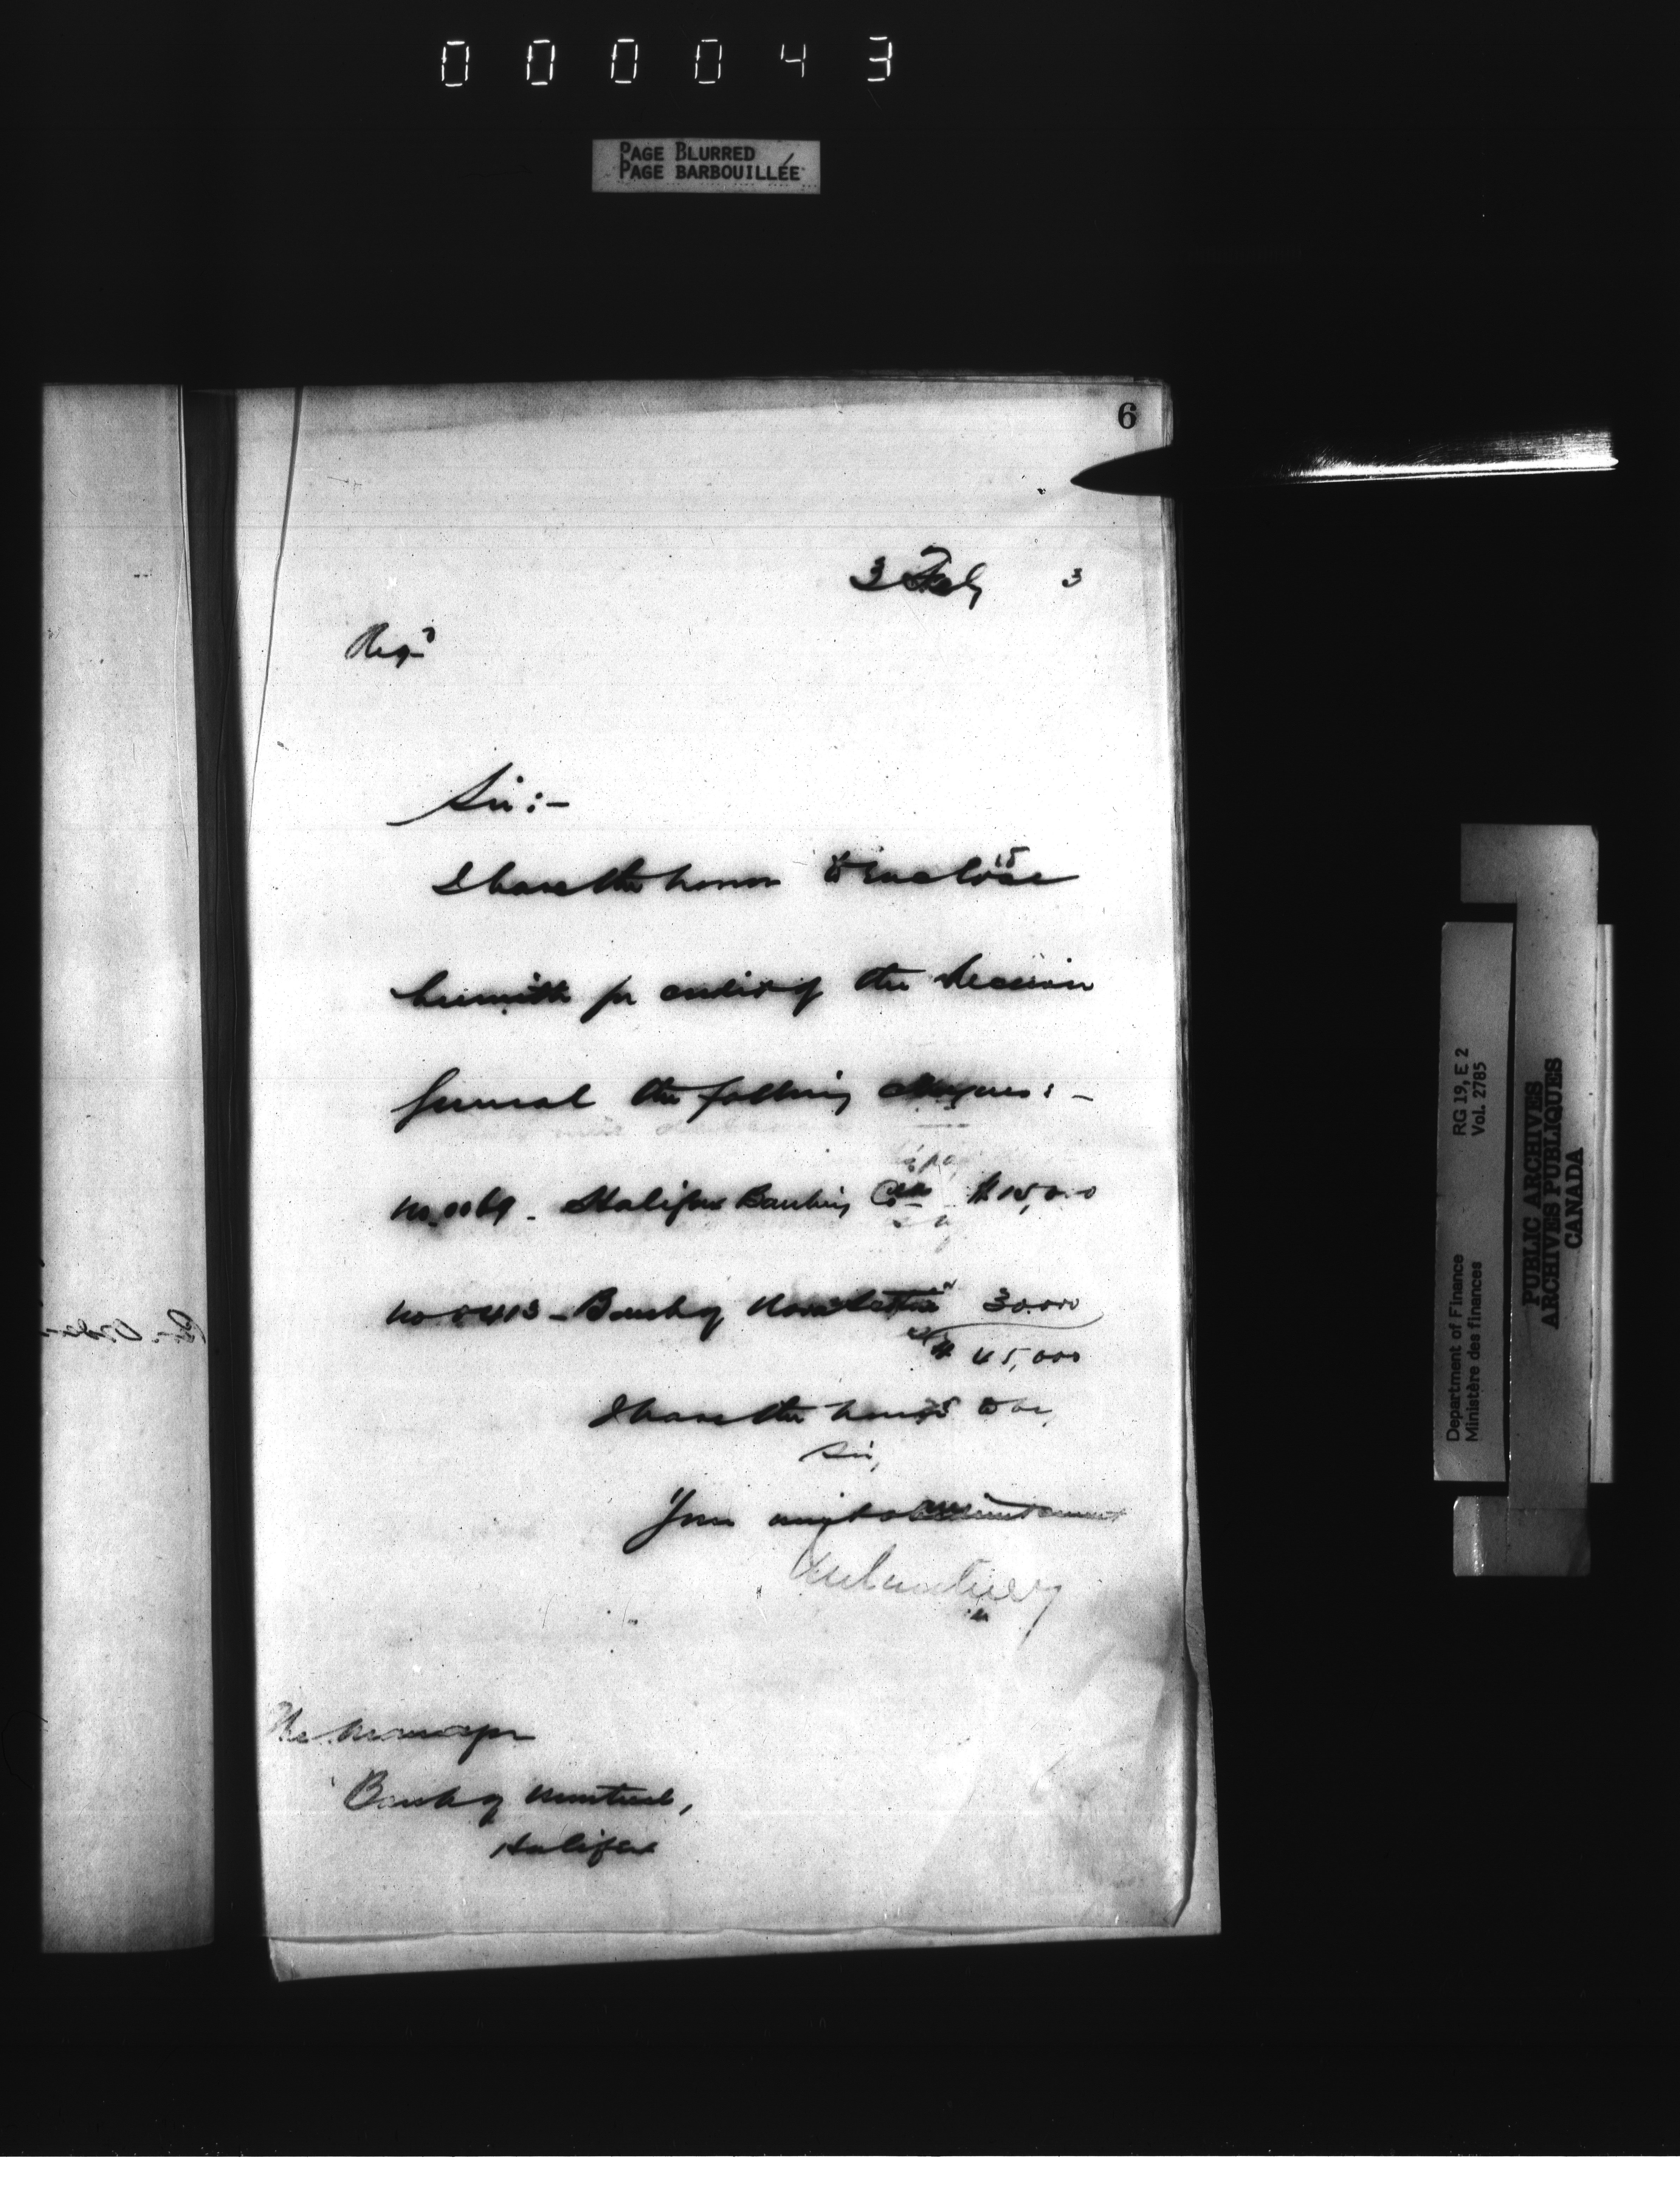 000043
PAGE BLURRED
PAGE BARBOUILLÉE
6
3 Feby 3
Regd
Sir:-
I have the honor to enclose
herewith for credit of the Receiver
General the following cheques:-
No. 0069 - Halifax Banking Co $15,000
No 0413 - Bank of Nova Scotia 30,000
$45,000
I have the honor to be,
Sir,
Your obedient servant
The Manager
Bank of Montreal,
Halifax
RG 19, E 2
Vol. 2785
Department of Finance
Ministère des finances
PUBLIC ARCHIVES
ARCHIVES PUBLIQUES
CANADA